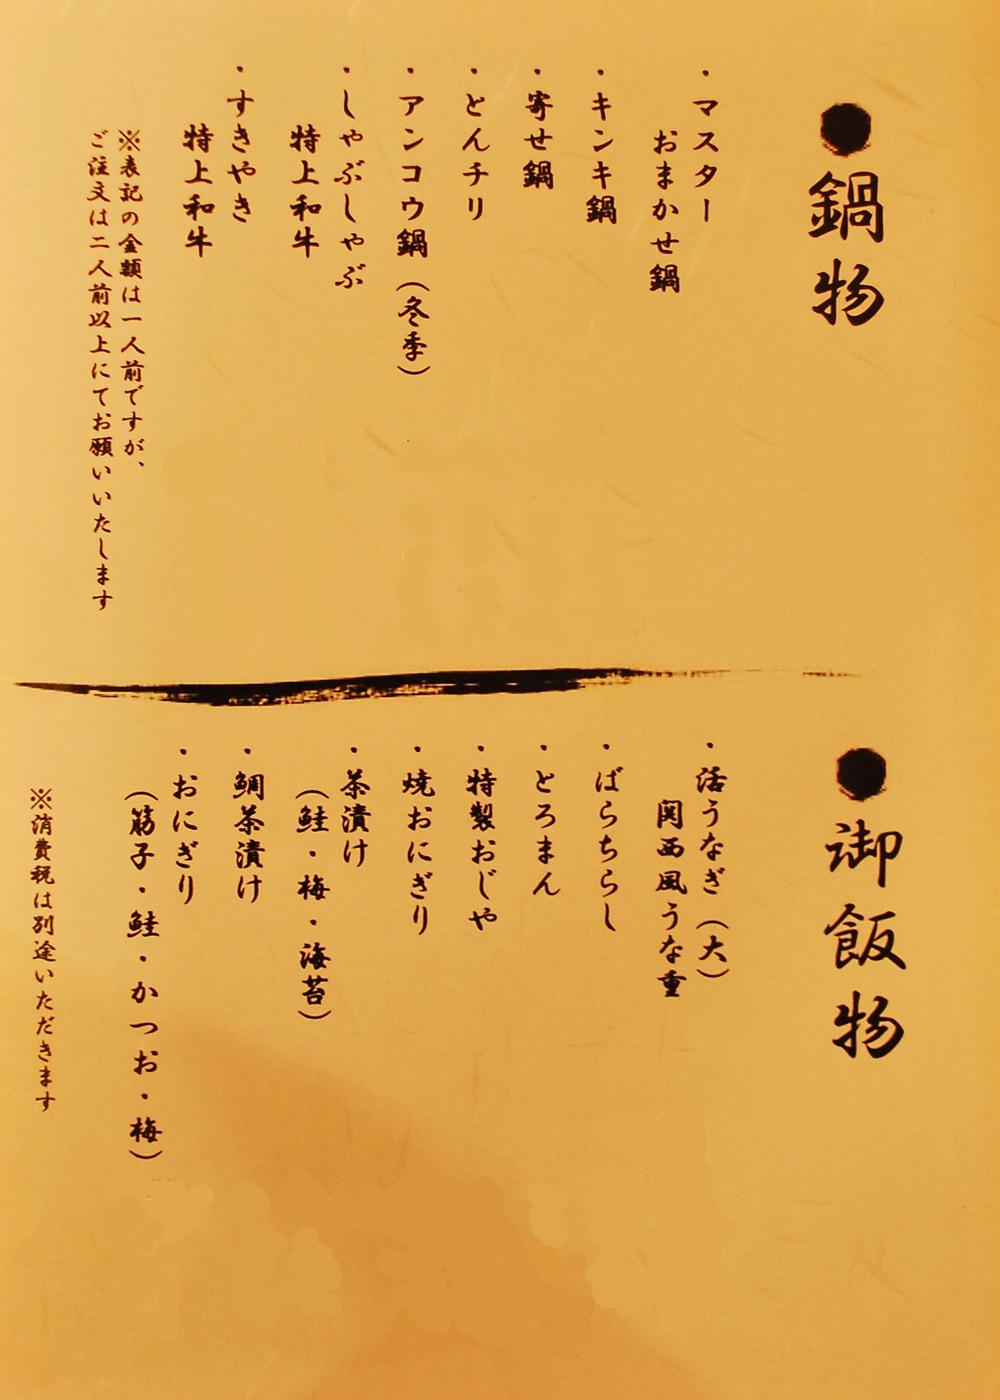 ●鍋物
・マスター
おまかせ鍋
・キンキ鍋
・寄せ鍋
・とんチリ
・アンコウ鍋（冬季）
・しゃぶしゃぶ
特上和牛
・すきやき
特上和牛
※表記の金額は一人前ですが、
ご注文は二人前以上にてお願いいたします
●御飯物
・活うなぎ（大）
関西風うな重
・ばらちらし
・とろまん
・特製おじや
・焼おにぎり
・茶漬け
（鮭・梅・海苔）
・鯛茶漬け
・おにぎり
（筋子・鮭・かつお・梅）
※消費税は別途いただきます